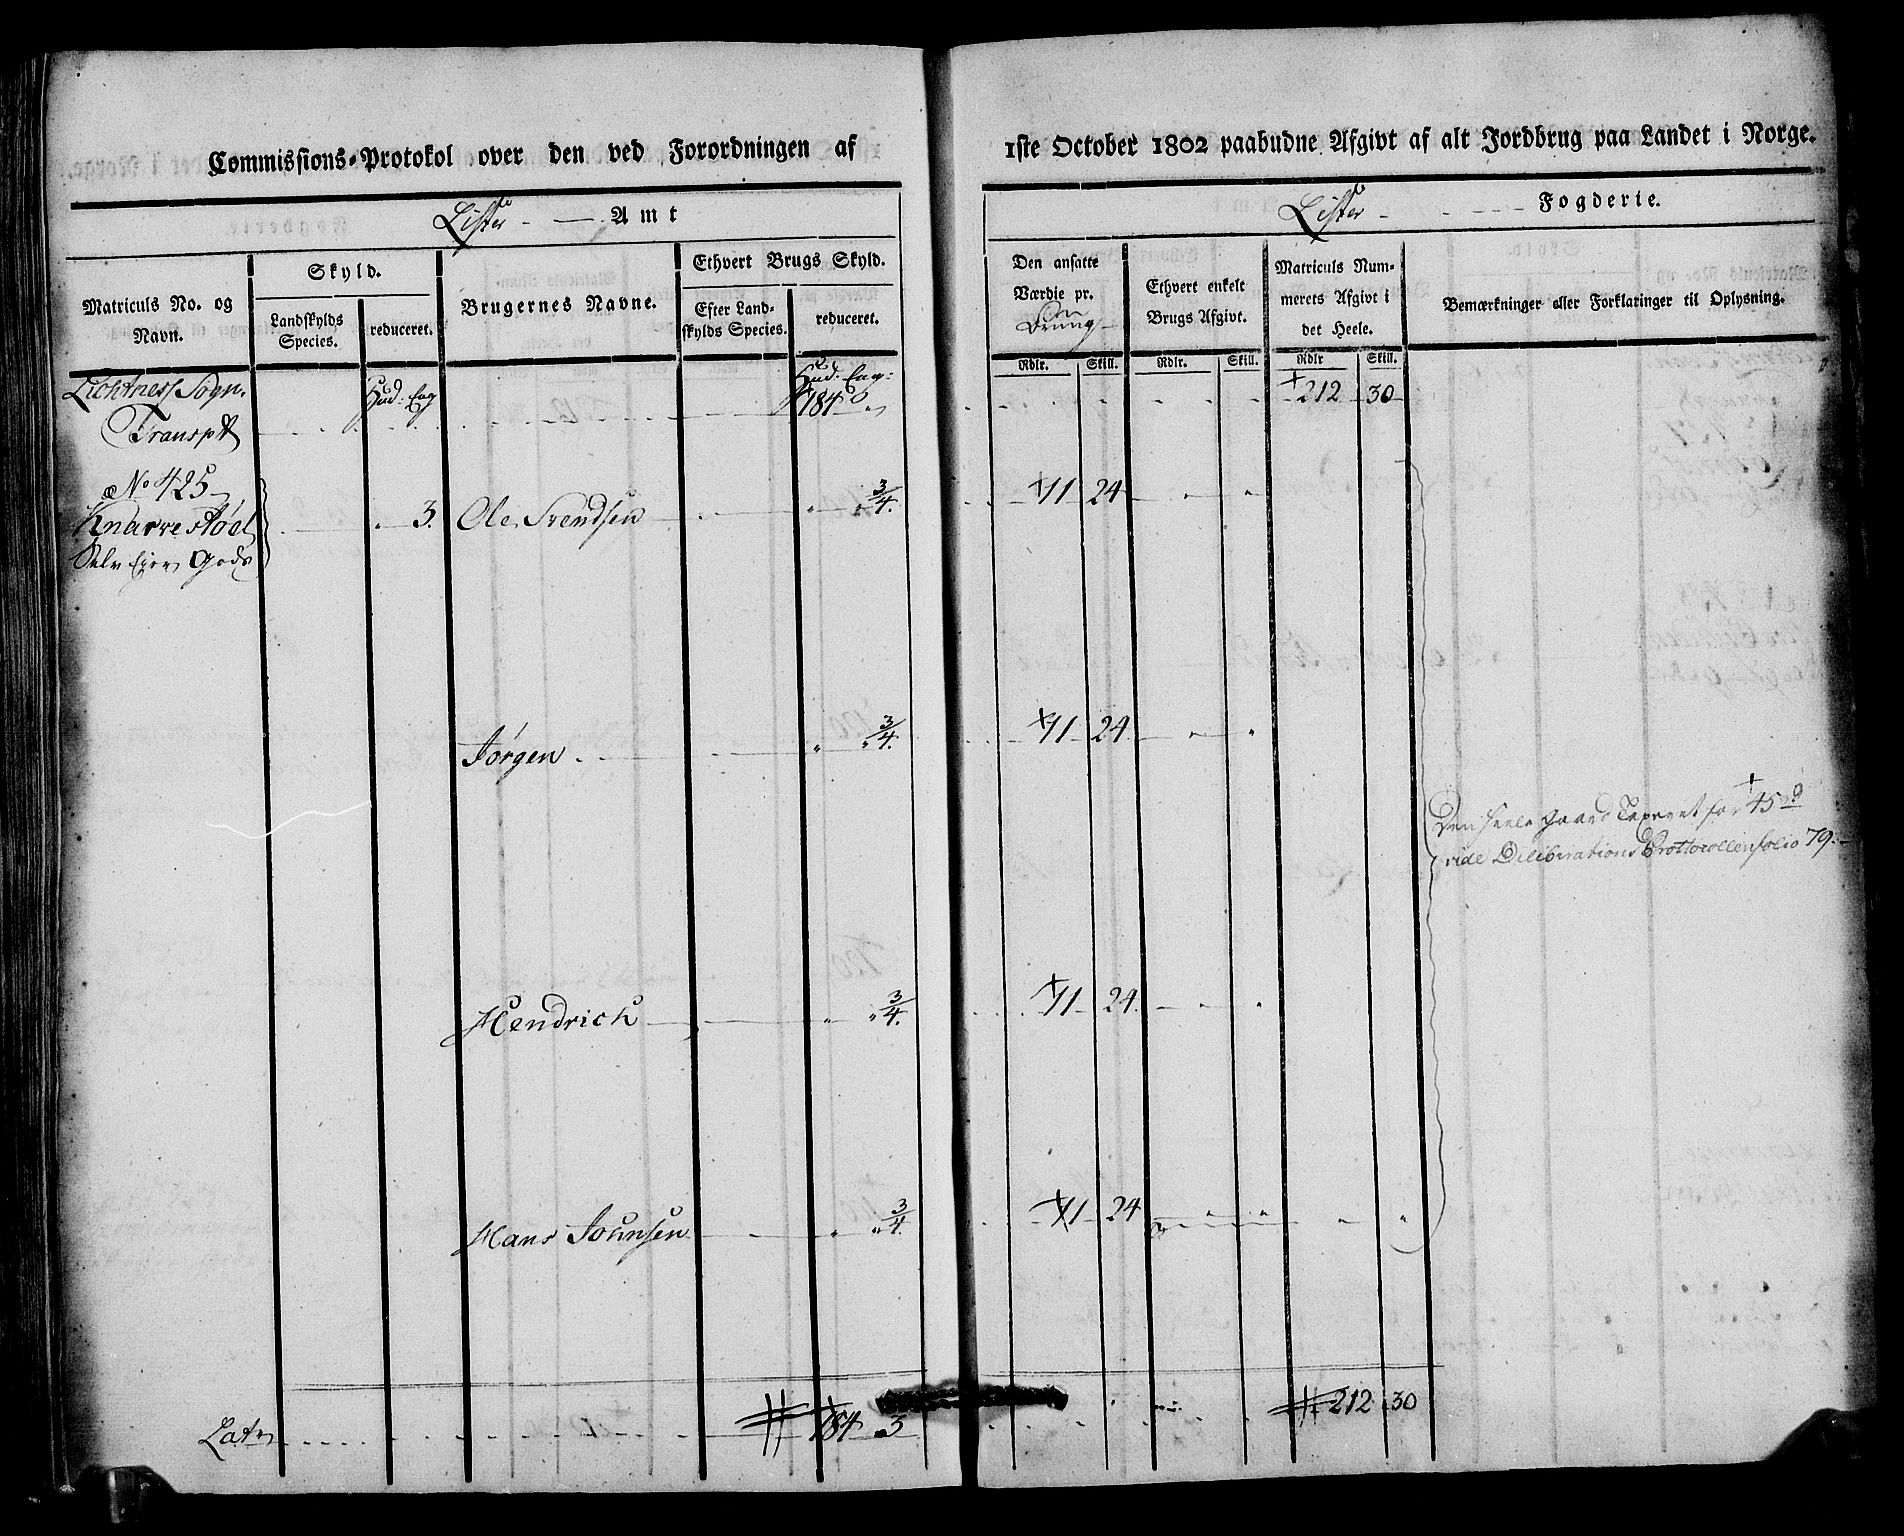 Commissions-Protokol over den ved Forordningen af 1ste October 1802 paabudne Afgivt af alt Jordbrug paa Landet i Norge.
Lister Amt
Lister Fogderie.
Matriculs No. og Navn.
Skyld.
Landskylds Species.
reduceret.
Brugernes Navne.
Ethvert Brugs Skyld.
Efter Landskylds Species.
reduceret.
Den ansatte Værdie pr.
Rdlr. Skill.
Ethvert enkelt Brugs Afgivt.
Rdlr. Skill.
Matriculs Nummerets Afgivt i det Heele.
Rdlr Skill.
Bemærkninger eller Forklaringer til Oplysning.
Sogn. Hud: Eng Hud: Eng:
Transpt 184 " 212 30
No 425
Knarrestöel " 3. Ole Svendsen " " 3/4. 71 24 " "
Selv Eier Gods
Jørgen " " 3/4. 71 24 " "
Den heele Gaard Taxeret for
vide Deliberations Protocollen folio 79.
Hendrich " " 3/4. 71 24 " "
Hans Johnsen " " 3/4. 71 24 " " " "
Lat 184 3 212 30